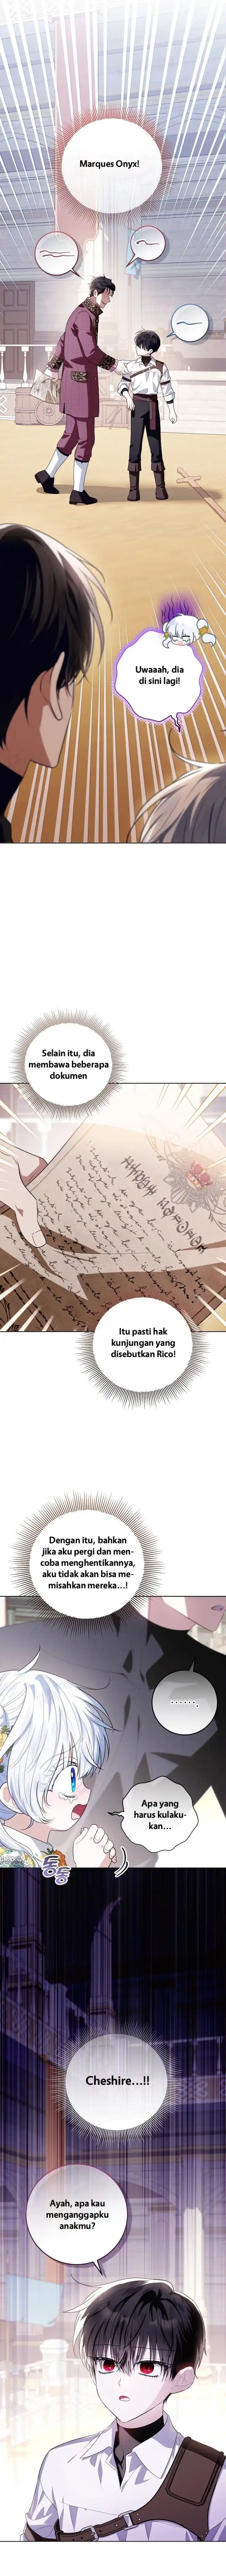 Marques Onyx!
Uwaaah, dia
di sini lagi!
Selain itu, dia
membawa beberapa
dokumen
Itu pasti hak
kunjungan yang
disebutkan Rico!
Dengan itu, bahkan
jika aku pergi dan men-
coba menghentikannya,
aku tidak akan bisa me-
misahkan mereka...!
.......
Apa yang
harus kulaku-
kan...
통통
Cheshire...!!
Ayah, apa kau
menganggapku
anakmu?